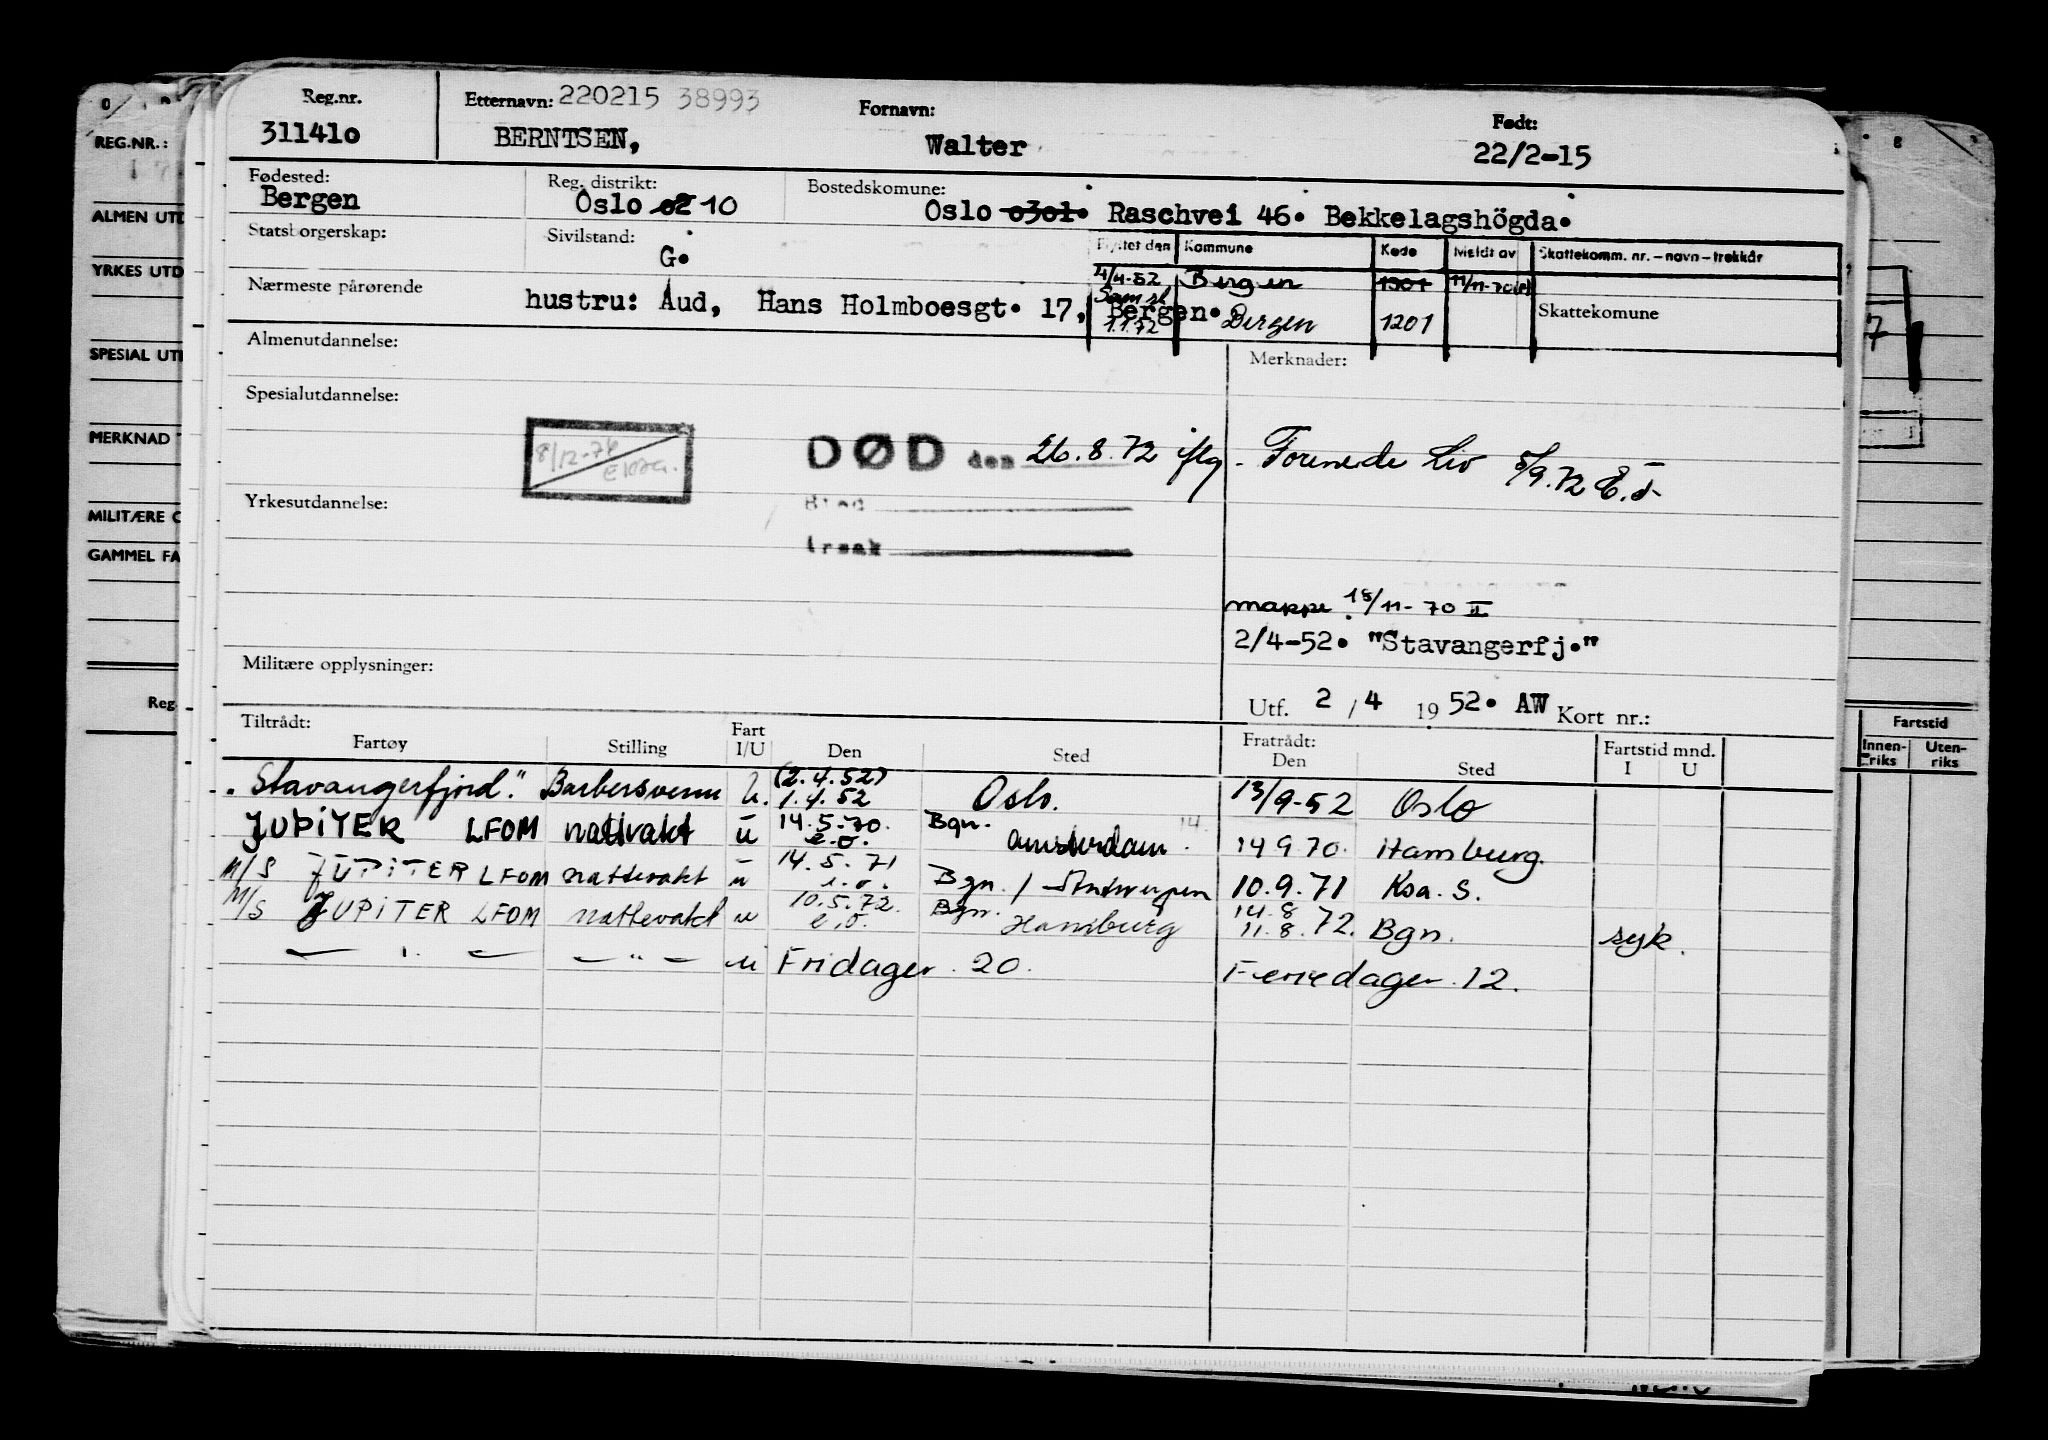 Reg.nr. Etternavn: 220215 38993 Fornavn: Født:
311410 BERNTSEN, Walter 22/2-15
Fødested: Reg. distrikt: Bostedskomune:
Bergen Oslo 02 10 Oslo 0301. Raschvei 46. Bekkelagshögda.
Statsborgerskap: Sivilstand: G.
Flyttet den Kommune Kode Meldt av Skattekomm. nr. - navn - trekkår
4/4-52 Bergen 1301 11/11-70
Nærmeste pårørende hustru: Aud, Hans Holmboesgt. 17, Bergen.
Sam.sk. 1.1.72 Bergen 1201 Skattekomune
Almenutdannelse: Merknader:
Spesialutdannelse:
8/12-76
DØD den 26.8.72 iflg. Forenede Liv 5/9.72 E.J.
Yrkesutdannelse:
Sted
Årsak
mappe 18/11-70 II
2/4-52. "Stavangerfj."
Militære opplysninger:
Utf. 2 / 4 19 52. AW Kort nr.:
Tiltrådt: Fratrådt: Fartstid mnd.
Fartøy Stilling Fart I/U Den Sted Den Sted I U
"Stavangerfjord" Barbersvenn U. (2.4.52) 1.4.52 Oslo. 13/9-52 Oslo
JUPITER LFOM nattvakt u 14.5.70. e.o. Bgn. Amsterdam. 14. 14 9 70. Hamburg.
M/S JUPITER LFOM nattevakt u 14.5.71 e.o. Bgn. / Antwerpen 10.9.71 Ksa. S.
M/S JUPITER LFOM nattevakt u 10.5.72. e.o. Bgn. Hamburg 14.8 11.8.72. Bgn. syk.
— " — — " — u Fridager. 20. Feriedager. 12.
REG.NR.:
ALMEN UTD
YRKES UTD
SPESIAL UTD
MERKNAD
MILITÆRE O
GAMMEL FA
Reg.
Fartstid
Innenriks Utenriks